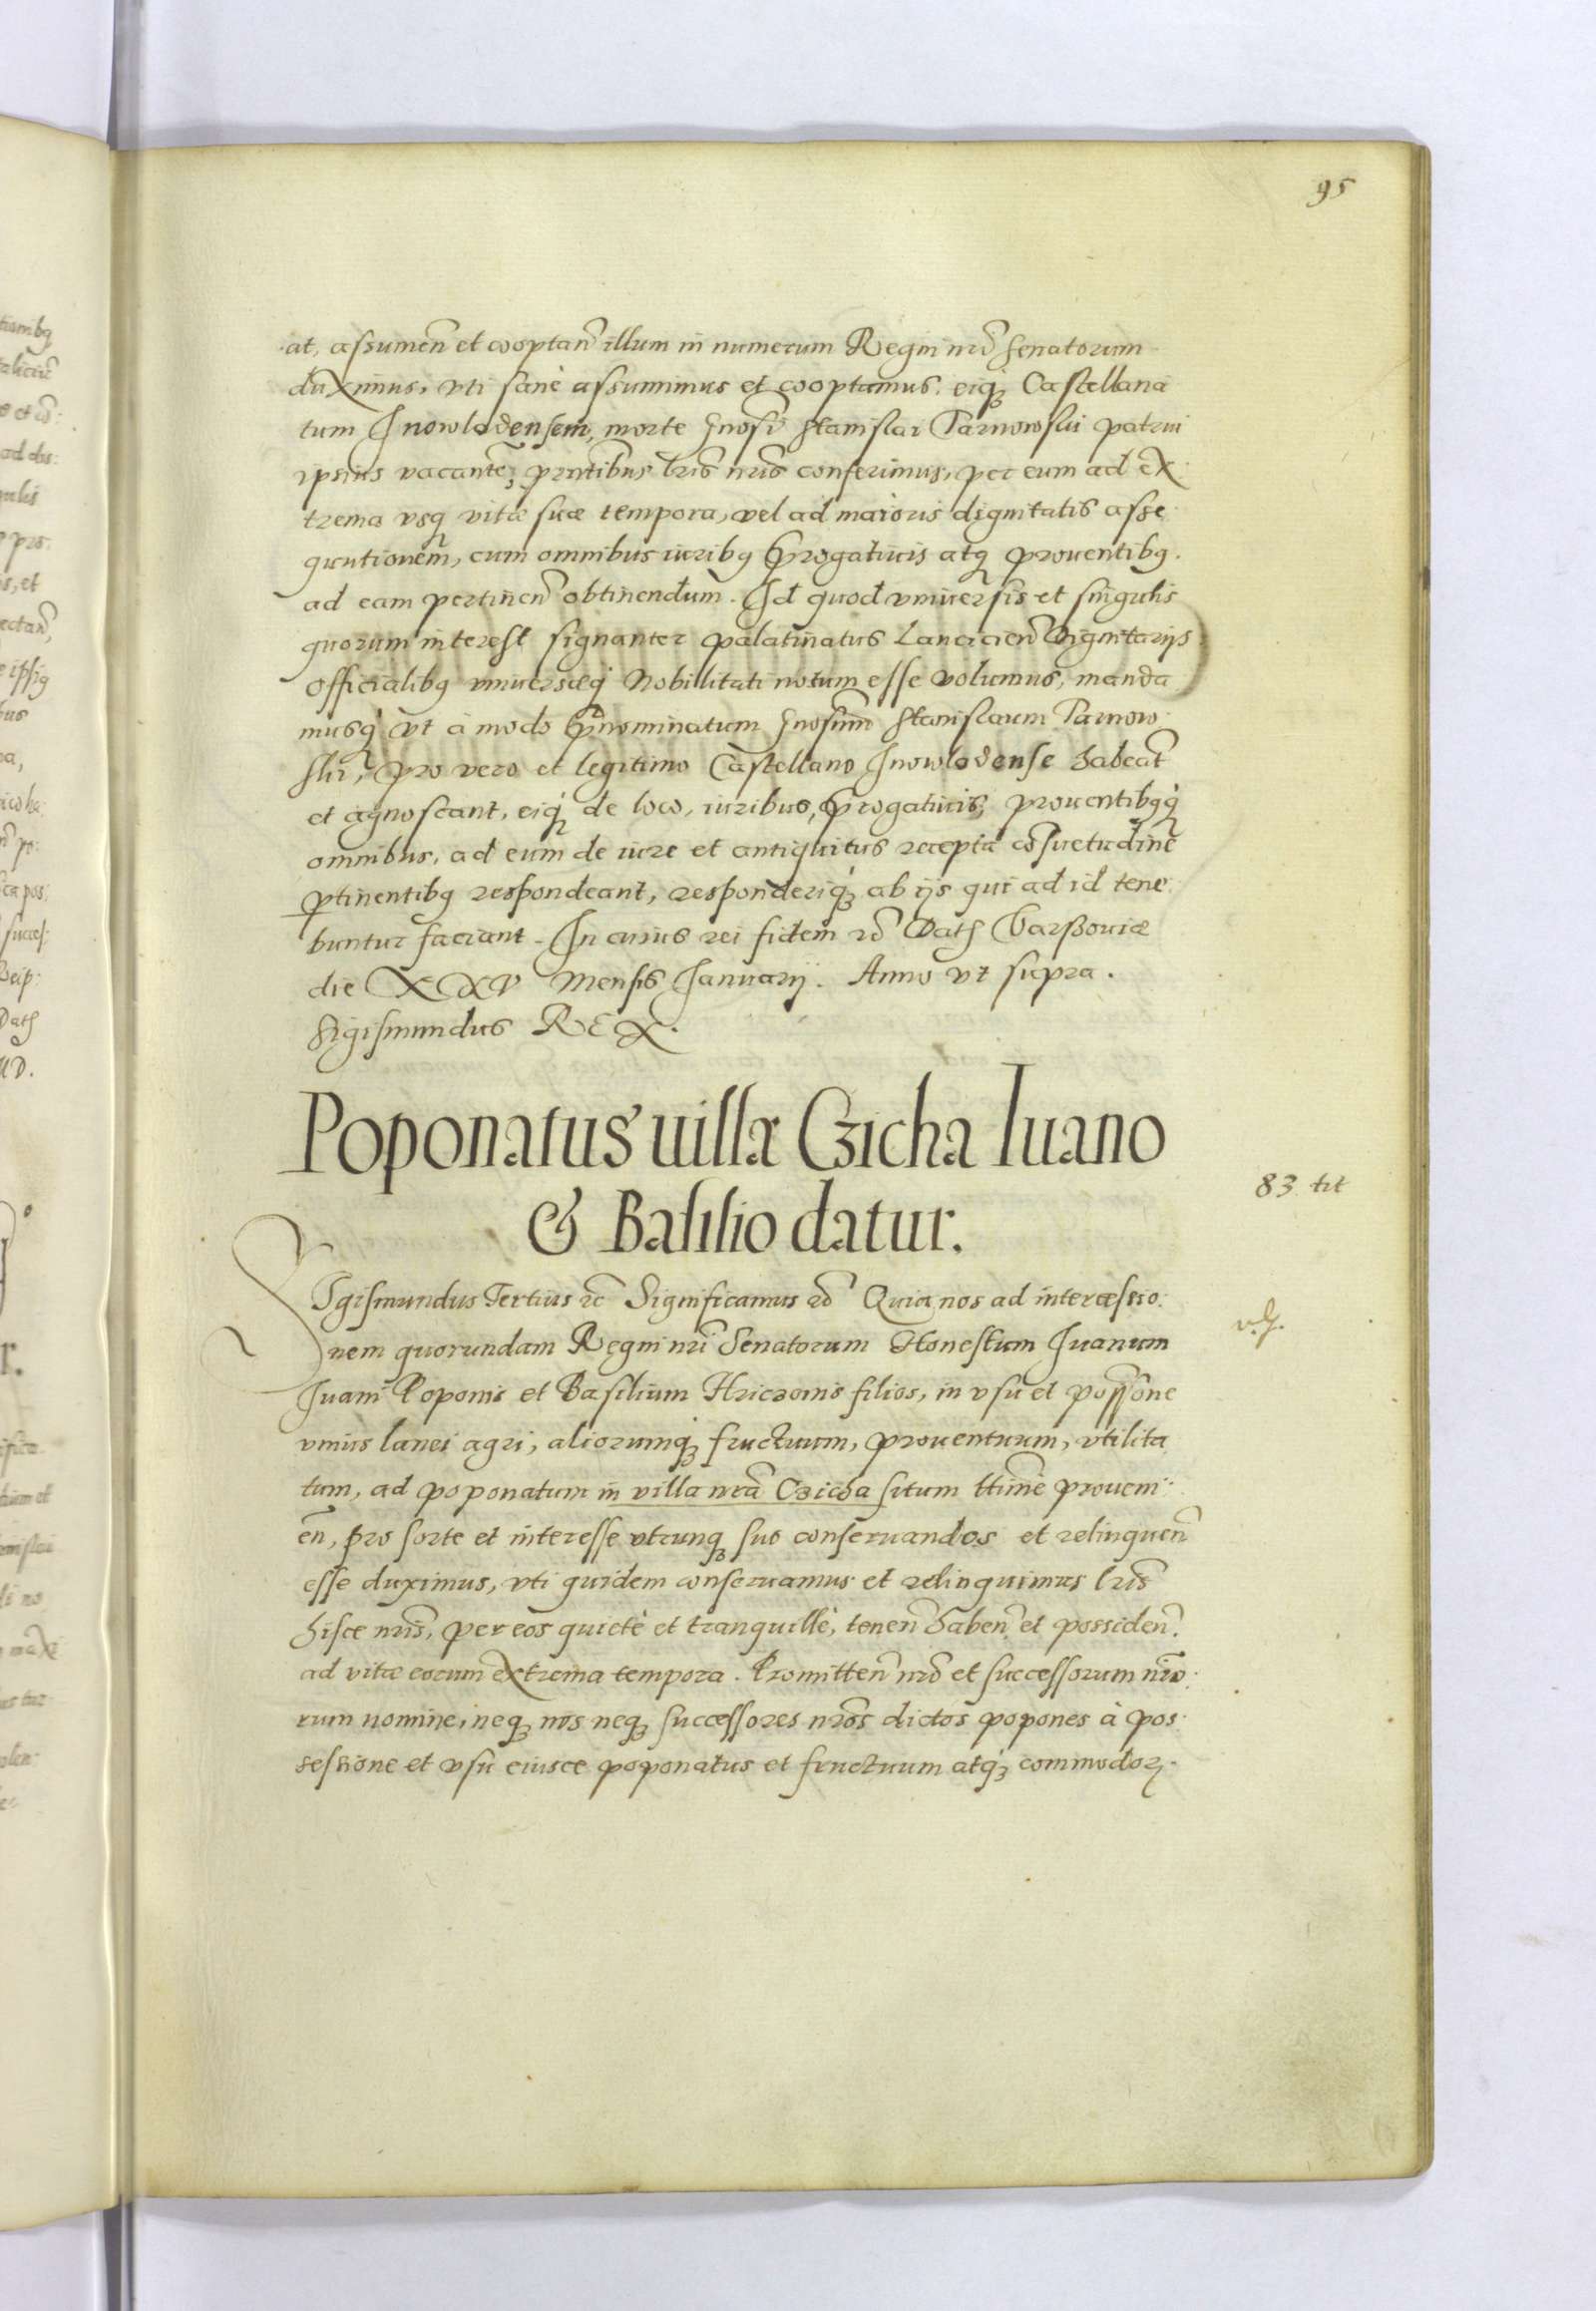 95
at, assumen et cooptan illum in numerum Regni nri Senatorum
duximus, vti sanè assumimus et cooptamus, eiq Castellana
tum Inowlodensem, morte Gnosi Stanislai Tarnowski patrui
ipsius vacantē, pntibus lris nris conferimus, per eum ad ex
trema vsq vitæ suæ tempora, vel ad maioris dignitatis asse
qutionem, cum omnibus iuribq prerogatiuis atq prouentibq
ad eam pertinen obtinendum. Id quod vniuersis et singulis
quorum interest signanter palatinatus Lancicien Dignitarijs
Officialibq vniuersæq Nobillitati notum esse volumus, manda
musq vt à modo prænominatum Gnosum Stanislaum Tarnow
ski, pro vero et legitimo Castellano Inowlodense habeat
et agnoscant, eiq de loco, iuribus, prerogatiuis, prouentibqq
omnibus, ad eum de iure et antiquitus recepta cosuetudine
ptinentibq respondeant, responderiq ab ijs qui ad id tene
buntur faciant. In cuius rei fidem rc Dath Varssouiæ
die XXV Mensis Januarij. Anno vt supra.
Sigismundus REX.
Poponatus uillæ Czicha Iuano
& Basilio datur.
83 tit
Sigismundus Tertius rc Significamus rc Quia nos ad intercessio:
nem quorundam Regni nri Senatorum Honestum Iuanum
Iuani Poponis et Basilium Hriczonis filios, in vsu et possone
vnius lanei agri, aliorumq fructuum, prouentuum, vtilita
tum, ad poponatum in villa nra Czicha situm ttime proueni
en, pro sorte et interesse vtrunq suo conseruandos et relinquen
esse duximus, vti quidem conseruamus et relinquimus lris
hisce nris, per eos quietè et tranquillè, tenen haben et possiden.
ad vitæ eorum extrema tempora. Promitten nro et successorum nro:
rum nomine, neq nos neq successores nros dictos popones à pos
sessione et vsu eiusce poponatus et fructuum atq commodor.